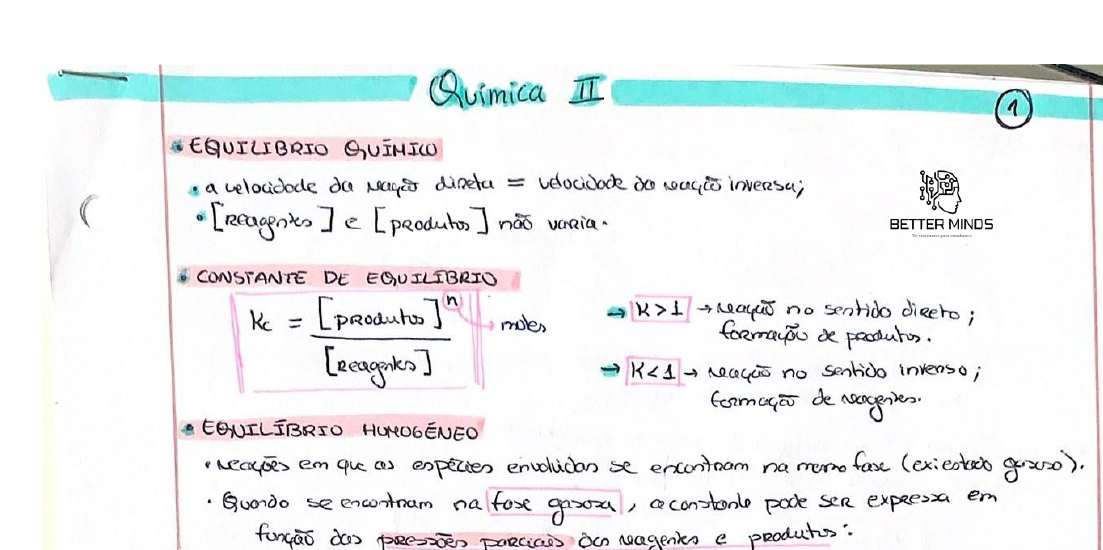 Química II
1
EQUILIBRIO QUÍMICO
a velocidade da reação direta = velocidade da reação inversa;
[Reagentes] e [produtos] não varia.
BETTER MINDS
CONSTANTE DE EQUILÍBRIO
Kc = [produtos]ⁿ → moles
[Reagentes]
→ K>1 → reação no sentido directo;
formação de produtos.
→ K<1 → reação no sentido inverso;
formação de reagentes.
EQUILÍBRIO HOMOGÉNEO
reações em que as espécies envolvidas se encontram na mesma fase (ex: estado gasoso).
Quando se encontram na fase gasosa, a constante pode ser expressa em
função das pressões parciais dos reagentes e produtos: